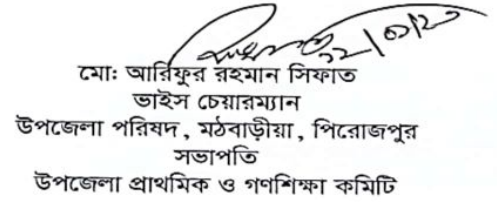 মো: আরিফুর রহমান সিফাত
ভাইস চেয়ারম্যান
উপজেলা পরিষদ, মঠবাড়ীয়া, পিরোজপুর
সভাপতি
উপজেলা প্রাথমিক ও গণশিক্ষা কমিটি